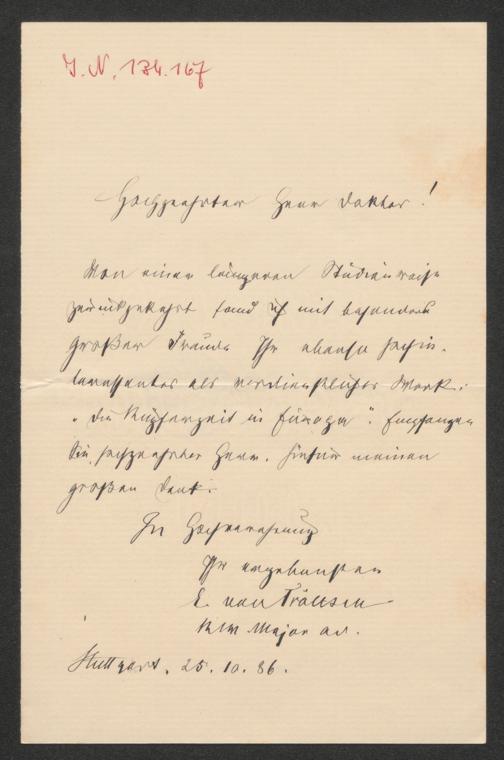 J. N. 134.167
Hochgeehrter Herr Doktor!
Von einer längeren Studienreise
zurückgekehrt fand ich mit besonders
großer Freude Ihr ebenso hochin-
teressantes als verdienstliches Werk:
„die Kupferzeit in Europa". Empfangen
Sie, hochgeehrter Herr, hiefür meinen
großen Dank.
In Hochverehrung
Ihr ergebenster
E. von Tröltsch
Major
Stuttgart, 25. 10. 86.